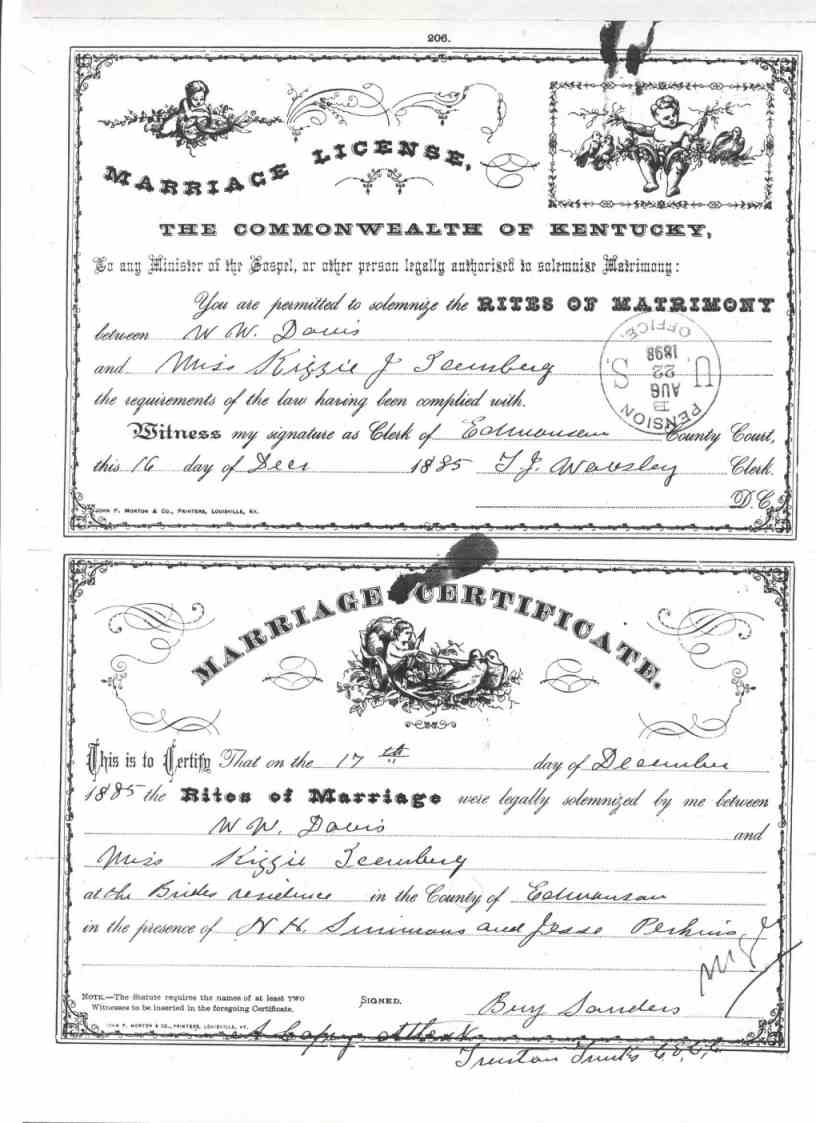 206.
MARRIAGE LICENSE,
THE COMMONWEALTH OF KENTUCKY,
To any Minister of the Gospel, or other person legally authorised to solemnise Matrimony:
You are permitted to solemnize the RITES OF MATRIMONY
between W W. Davis
and Miss Kizzie J
the requirements of the law having been complied with.
PENSION
B
AUG
22
1898
U. S.
OFFICE.
Witness my signature as Clerk of Edmonson County Court,
this 16 day of Decr 1885 T. J. Clerk.
D.C.
JOHN P. MORTON & CO., PRINTERS, LOUISVILLE, KY.
MARRIAGE CERTIFICATE.
This is to Certify That on the 17th day of December
1885 the Rites of Marriage were legally solemnized by me between
W W. Davis and
Miss Kizzie
at the Brides residence in the County of Edmonson
in the presence of N H. Simmons and Jesse Perkins
NOTE.—The Statute requires the names of at least TWO
Witnesses to be inserted in the foregoing Certificate.
SIGNED. Sanders
JOHN P. MORTON & CO., PRINTERS, LOUISVILLE, KY.
A Copy attest